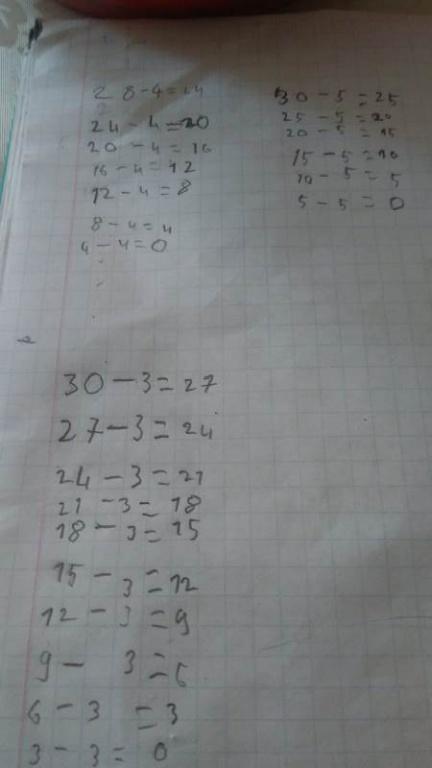 28-4=24
24-4=20
20-4=16
16-4=12
12-4=8
8-4=4
4-4=0
30-5=25
25-5=20
20-5=15
15-5=10
10-5=5
5-5=0
30-3=27
27-3=24
24-3=21
21-3=18
18-3=15
15-3=12
12-3=9
9-3=6
6-3=3
3-3=0